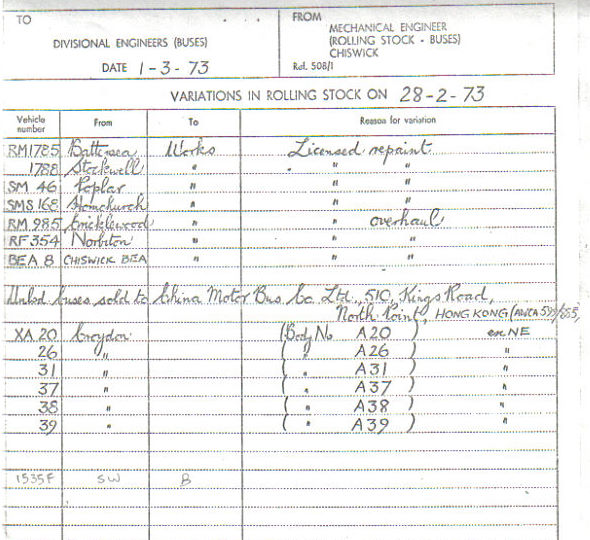 TO
FROM
MECHANICAL ENGINEER
(ROLLING STOCK - BUSES)
CHISWICK
DIVISIONAL ENGINEERS (BUSES)
DATE 1-3-73
Ref. 508/1
VARIATIONS IN ROLLING STOCK ON 28-2-73
Vehicle number From To Reason for variation
RM1785 Battersea Works Licensed repaint
1788 Stockwell " " "
SM 46 Poplar " " "
SMS 168 Hornchurch " " "
RM 985 Cricklewood " " overhaul
RF 354 Norbiton " " "
BEA 8 CHISWICK BEA " " "
Unlsd buses sold to China Motor Bus Co. Ltd., 510, Kings Road,
North Point, HONG KONG
XA 20 Croydon (Body No A20 ) ex NE
26 " ( " A26 ) "
31 " ( " A31 ) "
37 " ( " A37 ) "
38 " ( " A38 ) "
39 " ( " A39 ) "
1535F SW B